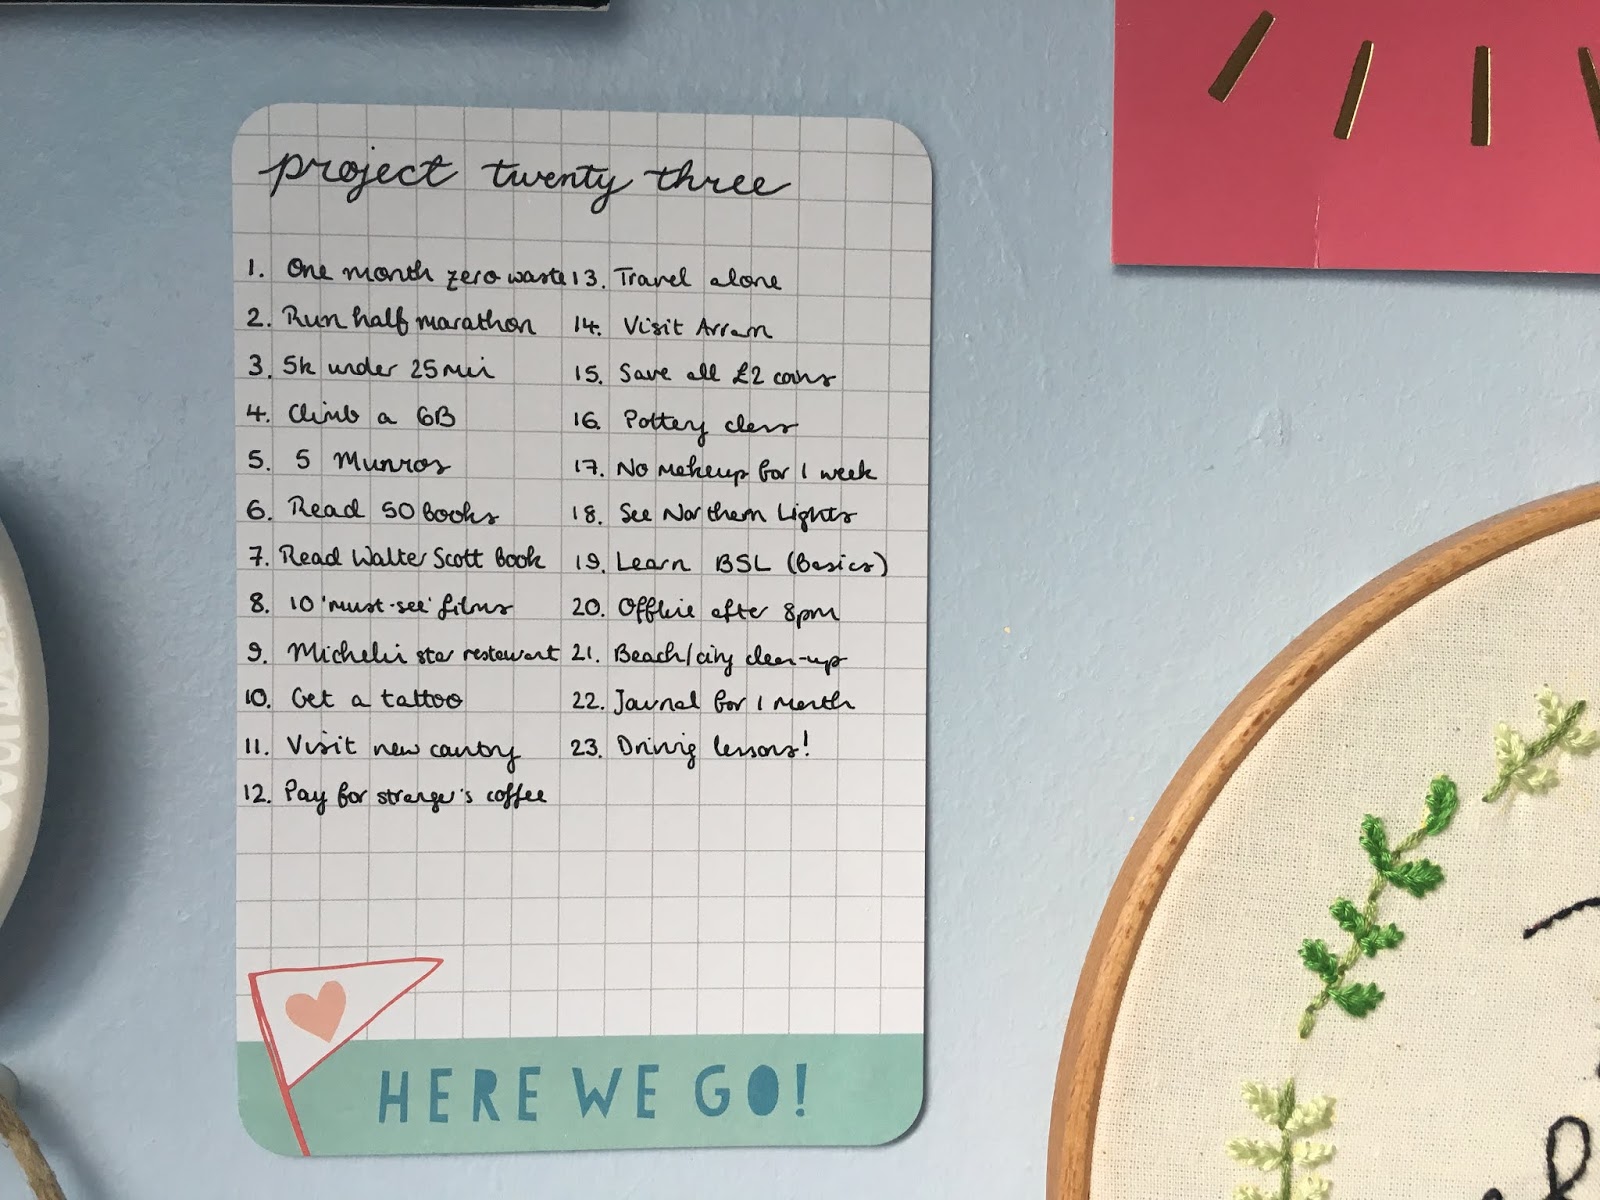 project twenty three
1. One month zero waste
2. Run half marathon
3. 5k under 25 min
4. Climb a 6B
5. 5 Munros
6. Read 50 books
7. Read Walter Scott book
8. 10 'must-see' films
9. Michelin star restaurant
10. Get a tattoo
11. Visit new country
12. Pay for stranger's coffee
13. Travel alone
14. Visit Arran
15. Save all £2 coins
16. Pottery class
17. No makeup for 1 week
18. See Northern Lights
19. Learn BSL (Basics)
20. Offline after 8pm
21. Beach/city clean-up
22. Journal for 1 Month
23. Driving lessons!
HERE WE GO!